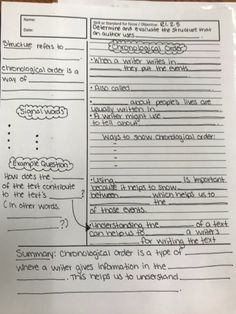 Name:
Date:
Skill or Standard for Focus / Objective: RI.2.5
Determine and evaluate the structure that an author uses
Structure refers to
Chronological order is a
way of
Signal Words
Example Question
How does the
of the text contribute
to the text's
(In other words,
?)
Chronological Order
• When a writer writes in
they put the events
• Also called
•            about people's lives are
usually written in
• A writer might use
to tell about
Ways to show chronological order:
• Using            is important
because it helps to show
between            which helps us to
the
of those events.
Understanding the            of a text
can help us to            a writer's
for writing the text
Summary: Chronological order is a type of
where a writer gives information in the
This helps us to understand